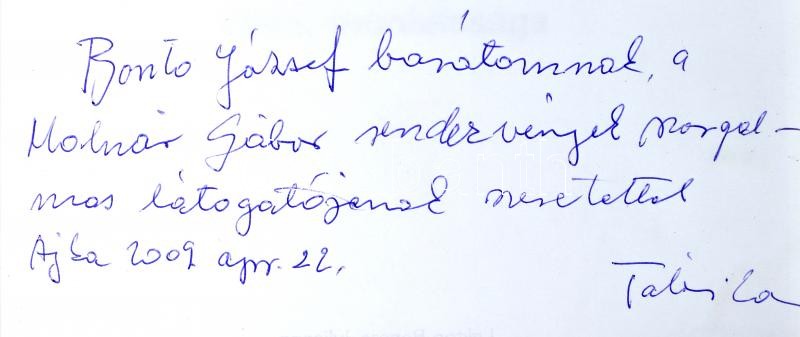 Bontó József barátomnak, a
Molnár Gábor rendezvények szorgal-
mas látogatójának szeretettel
Ajka 2009 apr. 22.